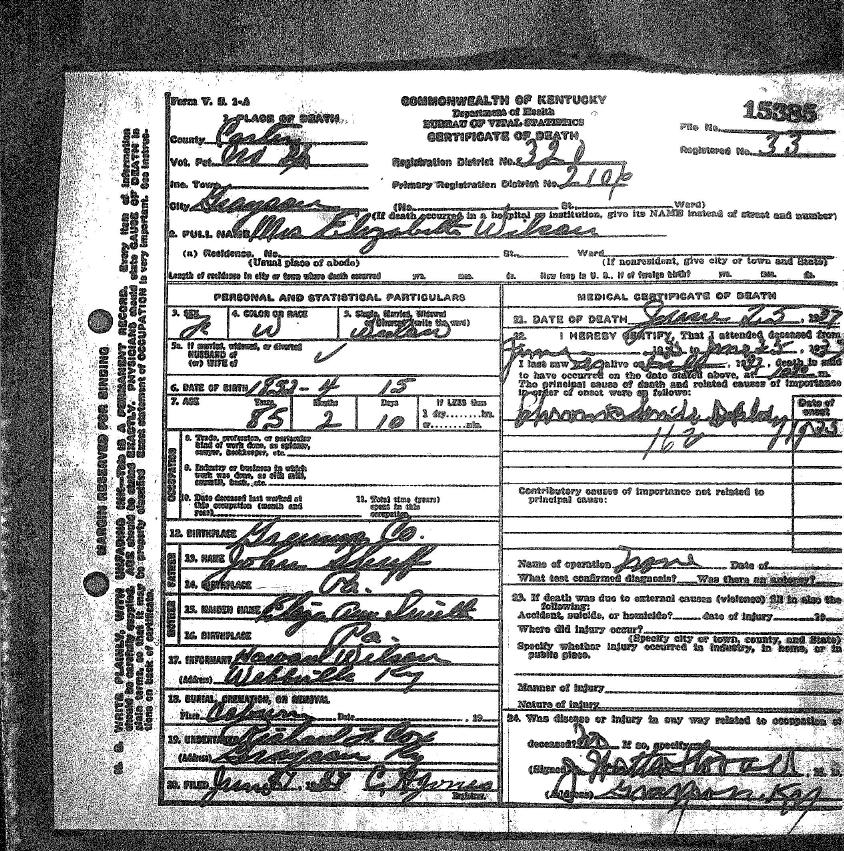 Form V. S. 1-A
COMMONWEALTH OF KENTUCKY
Department of Health
BUREAU OF VITAL STATISTICS
CERTIFICATE OF DEATH
15385
File No.
Registered No. 33
1. PLACE OF DEATH
County Carter
Vot. Pct.
Registration District No. 320
Inc. Town
Primary Registration District No. 210
City Grayson (No. St. Ward)
(If death occurred in a hospital or institution, give its NAME instead of street and number)
2. FULL NAME Mrs Elizabeth Wilson
(a) Residence. No. St., Ward
(Usual place of abode) (If nonresident, give city or town and State)
Length of residence in city or town where death occurred yrs. mos. ds. How long in U. S., if of foreign birth? yrs. mos. ds.
PERSONAL AND STATISTICAL PARTICULARS
3. SEX 4. COLOR OR RACE 5. Single, Married, Widowed or Divorced (write the word)
F W
5a. If married, widowed, or divorced
HUSBAND of
(or) WIFE of
6. DATE OF BIRTH 4 15
7. AGE Years Months Days If LESS than
85 2 10 1 day........hrs.
or........min.
OCCUPATION
8. Trade, profession, or particular
kind of work done, as spinner,
sawyer, bookkeeper, etc.
9. Industry or business in which
work was done, as silk mill,
sawmill, bank, etc.
10. Date deceased last worked at
this occupation (month and
year)
11. Total time (years)
spent in this
occupation
12. BIRTHPLACE Co.
FATHER
13. NAME John
14. BIRTHPLACE Pa.
MOTHER
15. MAIDEN NAME Eliza Ann Smith
16. BIRTHPLACE Pa.
17. INFORMANT Howard Wilson
(Address) Webbville Ky
18. BURIAL, CREMATION, OR REMOVAL
Place Date , 19
19. UNDERTAKER Richard H Cox
(Address) Grayson Ky
20. FILED June 37 C. H. Jones
Registrar.
MEDICAL CERTIFICATE OF DEATH
21. DATE OF DEATH June 25, 1937
22. I HEREBY CERTIFY, That I attended deceased from
June to June 25
I last saw alive on death is said
to have occurred on the date stated above, at m.
The principal cause of death and related causes of importance
in order of onset were as follows:
Date of
onset
162
Contributory causes of importance not related to
principal cause:
Name of operation none Date of
What test confirmed diagnosis? Was there an autopsy?
23. If death was due to external causes (violence) fill in also the
following:
Accident, suicide, or homicide? date of injury 19
Where did injury occur?
(Specify city or town, county, and State)
Specify whether injury occurred in industry, in home, or in
public place.
Manner of injury
Nature of injury
24. Was disease or injury in any way related to occupation of
deceased? No If so, specify
(Signed) M. D.
(Address) Grayson Ky
MARGIN RESERVED FOR BINDING
N. B. WRITE PLAINLY, WITH UNFADING INK—THIS IS A PERMANENT RECORD. Every item of information
should be carefully supplied. AGE should be stated EXACTLY. PHYSICIANS should state CAUSE OF DEATH in
plain terms, so that it may be properly classified. Exact statement of OCCUPATION is very important. See instruc-
tions on back of certificate.